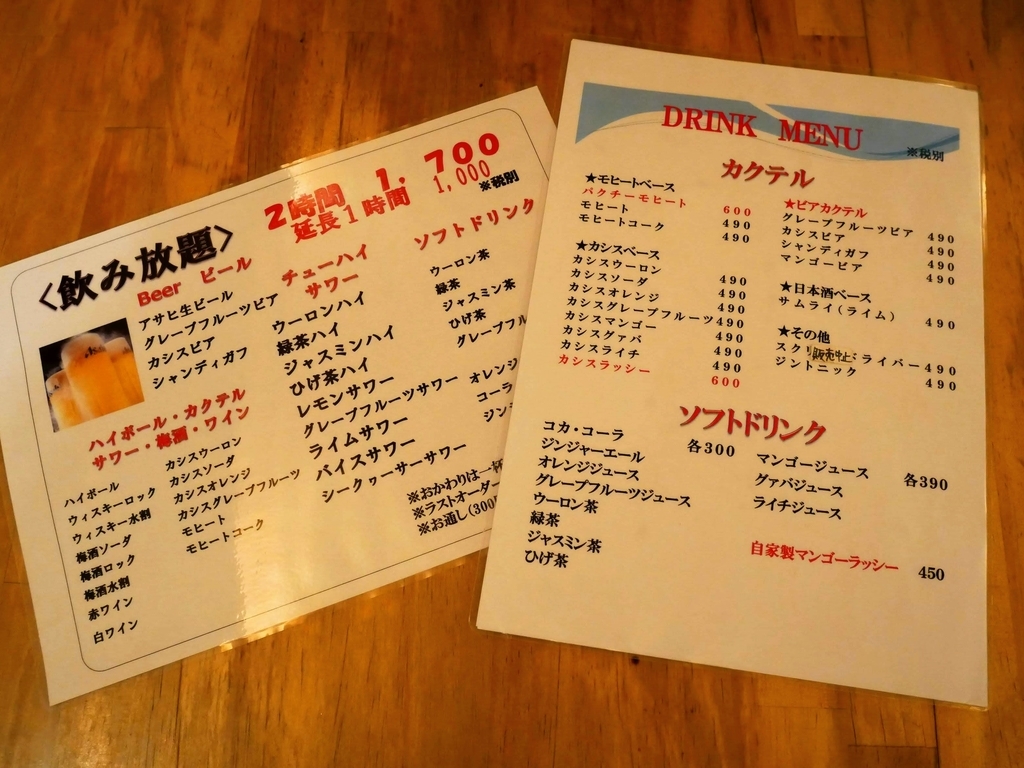 <飲み放題>
2時間 1,700
延長1時間 1,000
※税別
Beer ビール
アサヒ生ビール
グレープフルーツビア
カシスビア
シャンディガフ
ハイボール・カクテル
サワー・梅酒・ワイン
ハイボール
ウィスキーロック
ウィスキー水割
梅酒ソーダ
梅酒ロック
梅酒水割
赤ワイン
白ワイン
カシスウーロン
カシスソーダ
カシスオレンジ
カシスグレープフルーツ
モヒート
モヒートコーク
チューハイ
サワー
ウーロンハイ
緑茶ハイ
ジャスミンハイ
ひげ茶ハイ
レモンサワー
グレープフルーツサワー
ライムサワー
バイスサワー
シークヮーサーサワー
ソフトドリンク
ウーロン茶
緑茶
ジャスミン茶
ひげ茶
グレープフル
オレンジ
コーラ
ジン
※おかわりは一杯
※ラストオーダー
※お通し(300
DRINK MENU
※税別
カクテル
★モヒートベース
パクチーモヒート 600
モヒート 490
モヒートコーク 490
★カシスベース
カシスウーロン 490
カシスソーダ 490
カシスオレンジ 490
カシスグレープフルーツ 490
カシスマンゴー 490
カシスグァバ 490
カシスライチ 490
カシスラッシー 600
★ビアカクテル
グレープフルーツビア 490
カシスビア 490
シャンディガフ 490
マンゴービア 490
★日本酒ベース
サムライ(ライム) 490
★その他
スクリ 販売中止 ライバー 490
ジントニック 490
ソフトドリンク
コカ・コーラ 各300
ジンジャーエール
オレンジジュース
グレープフルーツジュース
ウーロン茶
緑茶
ジャスミン茶
ひげ茶
マンゴージュース 各390
グァバジュース
ライチジュース
自家製マンゴーラッシー 450